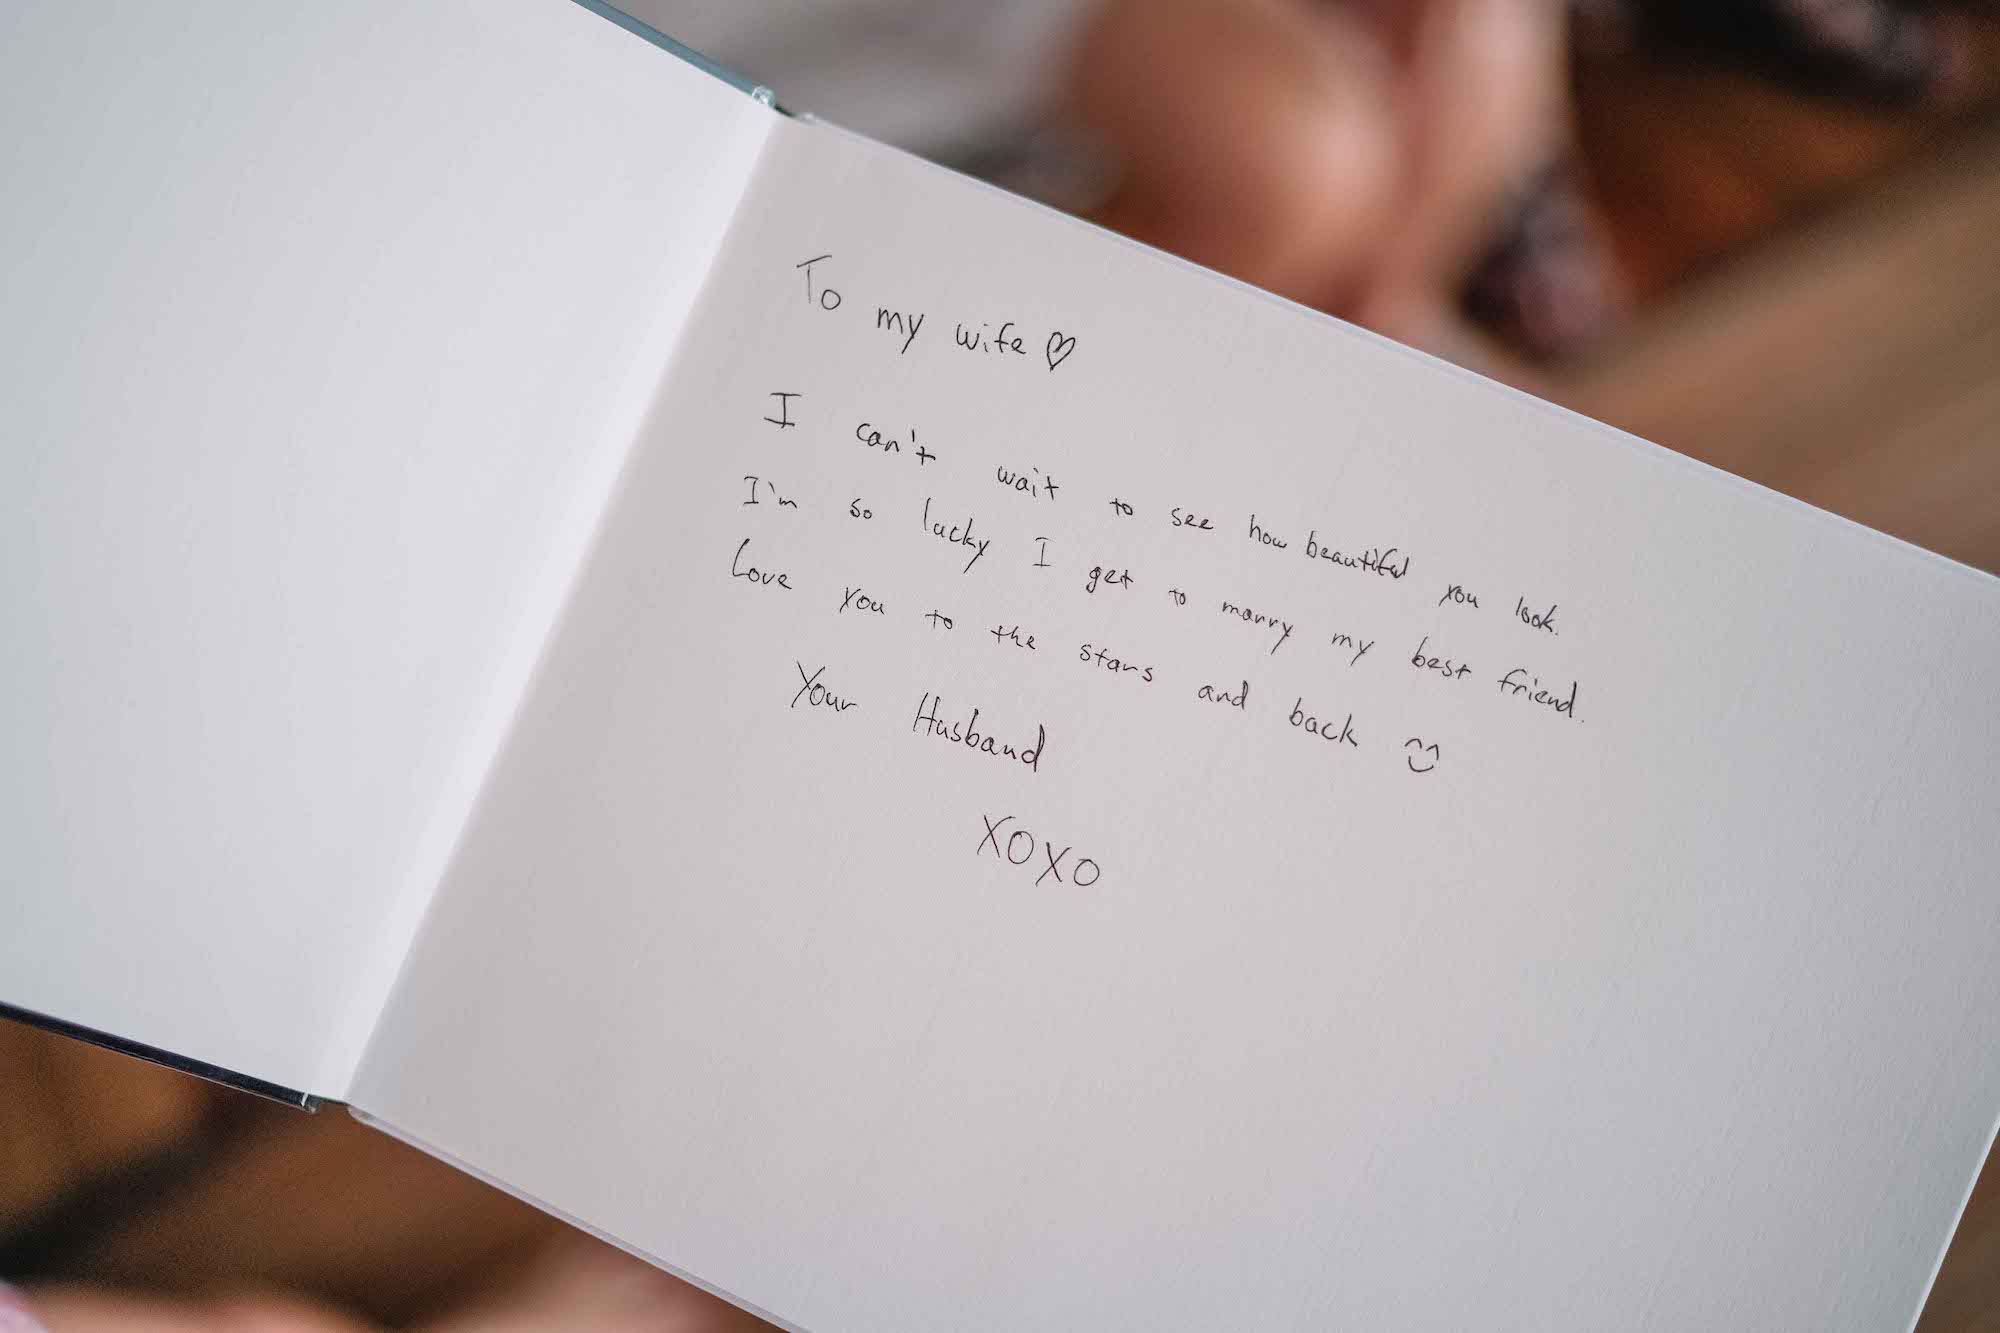 To my wife ♡
I can't wait to see how beautiful you look.
I'm so lucky I get to marry my best friend.
Love you to the stars and back
Your Husband
XOXO